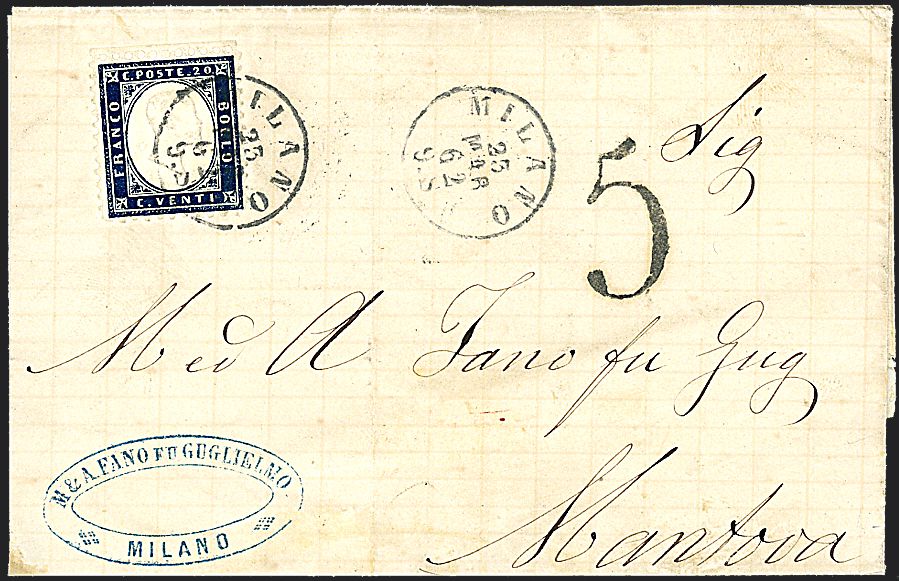 C. POSTE. 20
FRANCO
BOLLO
C. VENTI
MILANO
25
MILANO
25
MAR
62
9 S
5
Sig
M ed A Fano fu Gug
Mantova
M & A. FANO FU GUGLIELMO
MILANO